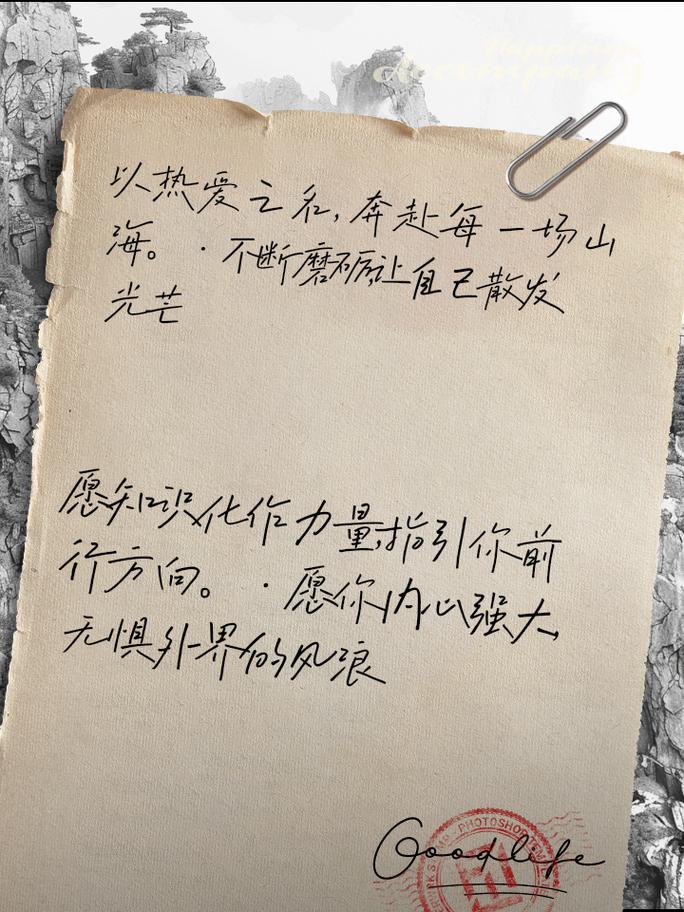 Happiness
Accompany
以热爱之名,奔赴每一场山
海。·不断磨砺,让自己散发
光芒
愿知识化作力量,指引你前
行方向。·愿你内心强大,
无惧外界的风浪
PHOTOSHOP
Goodlife